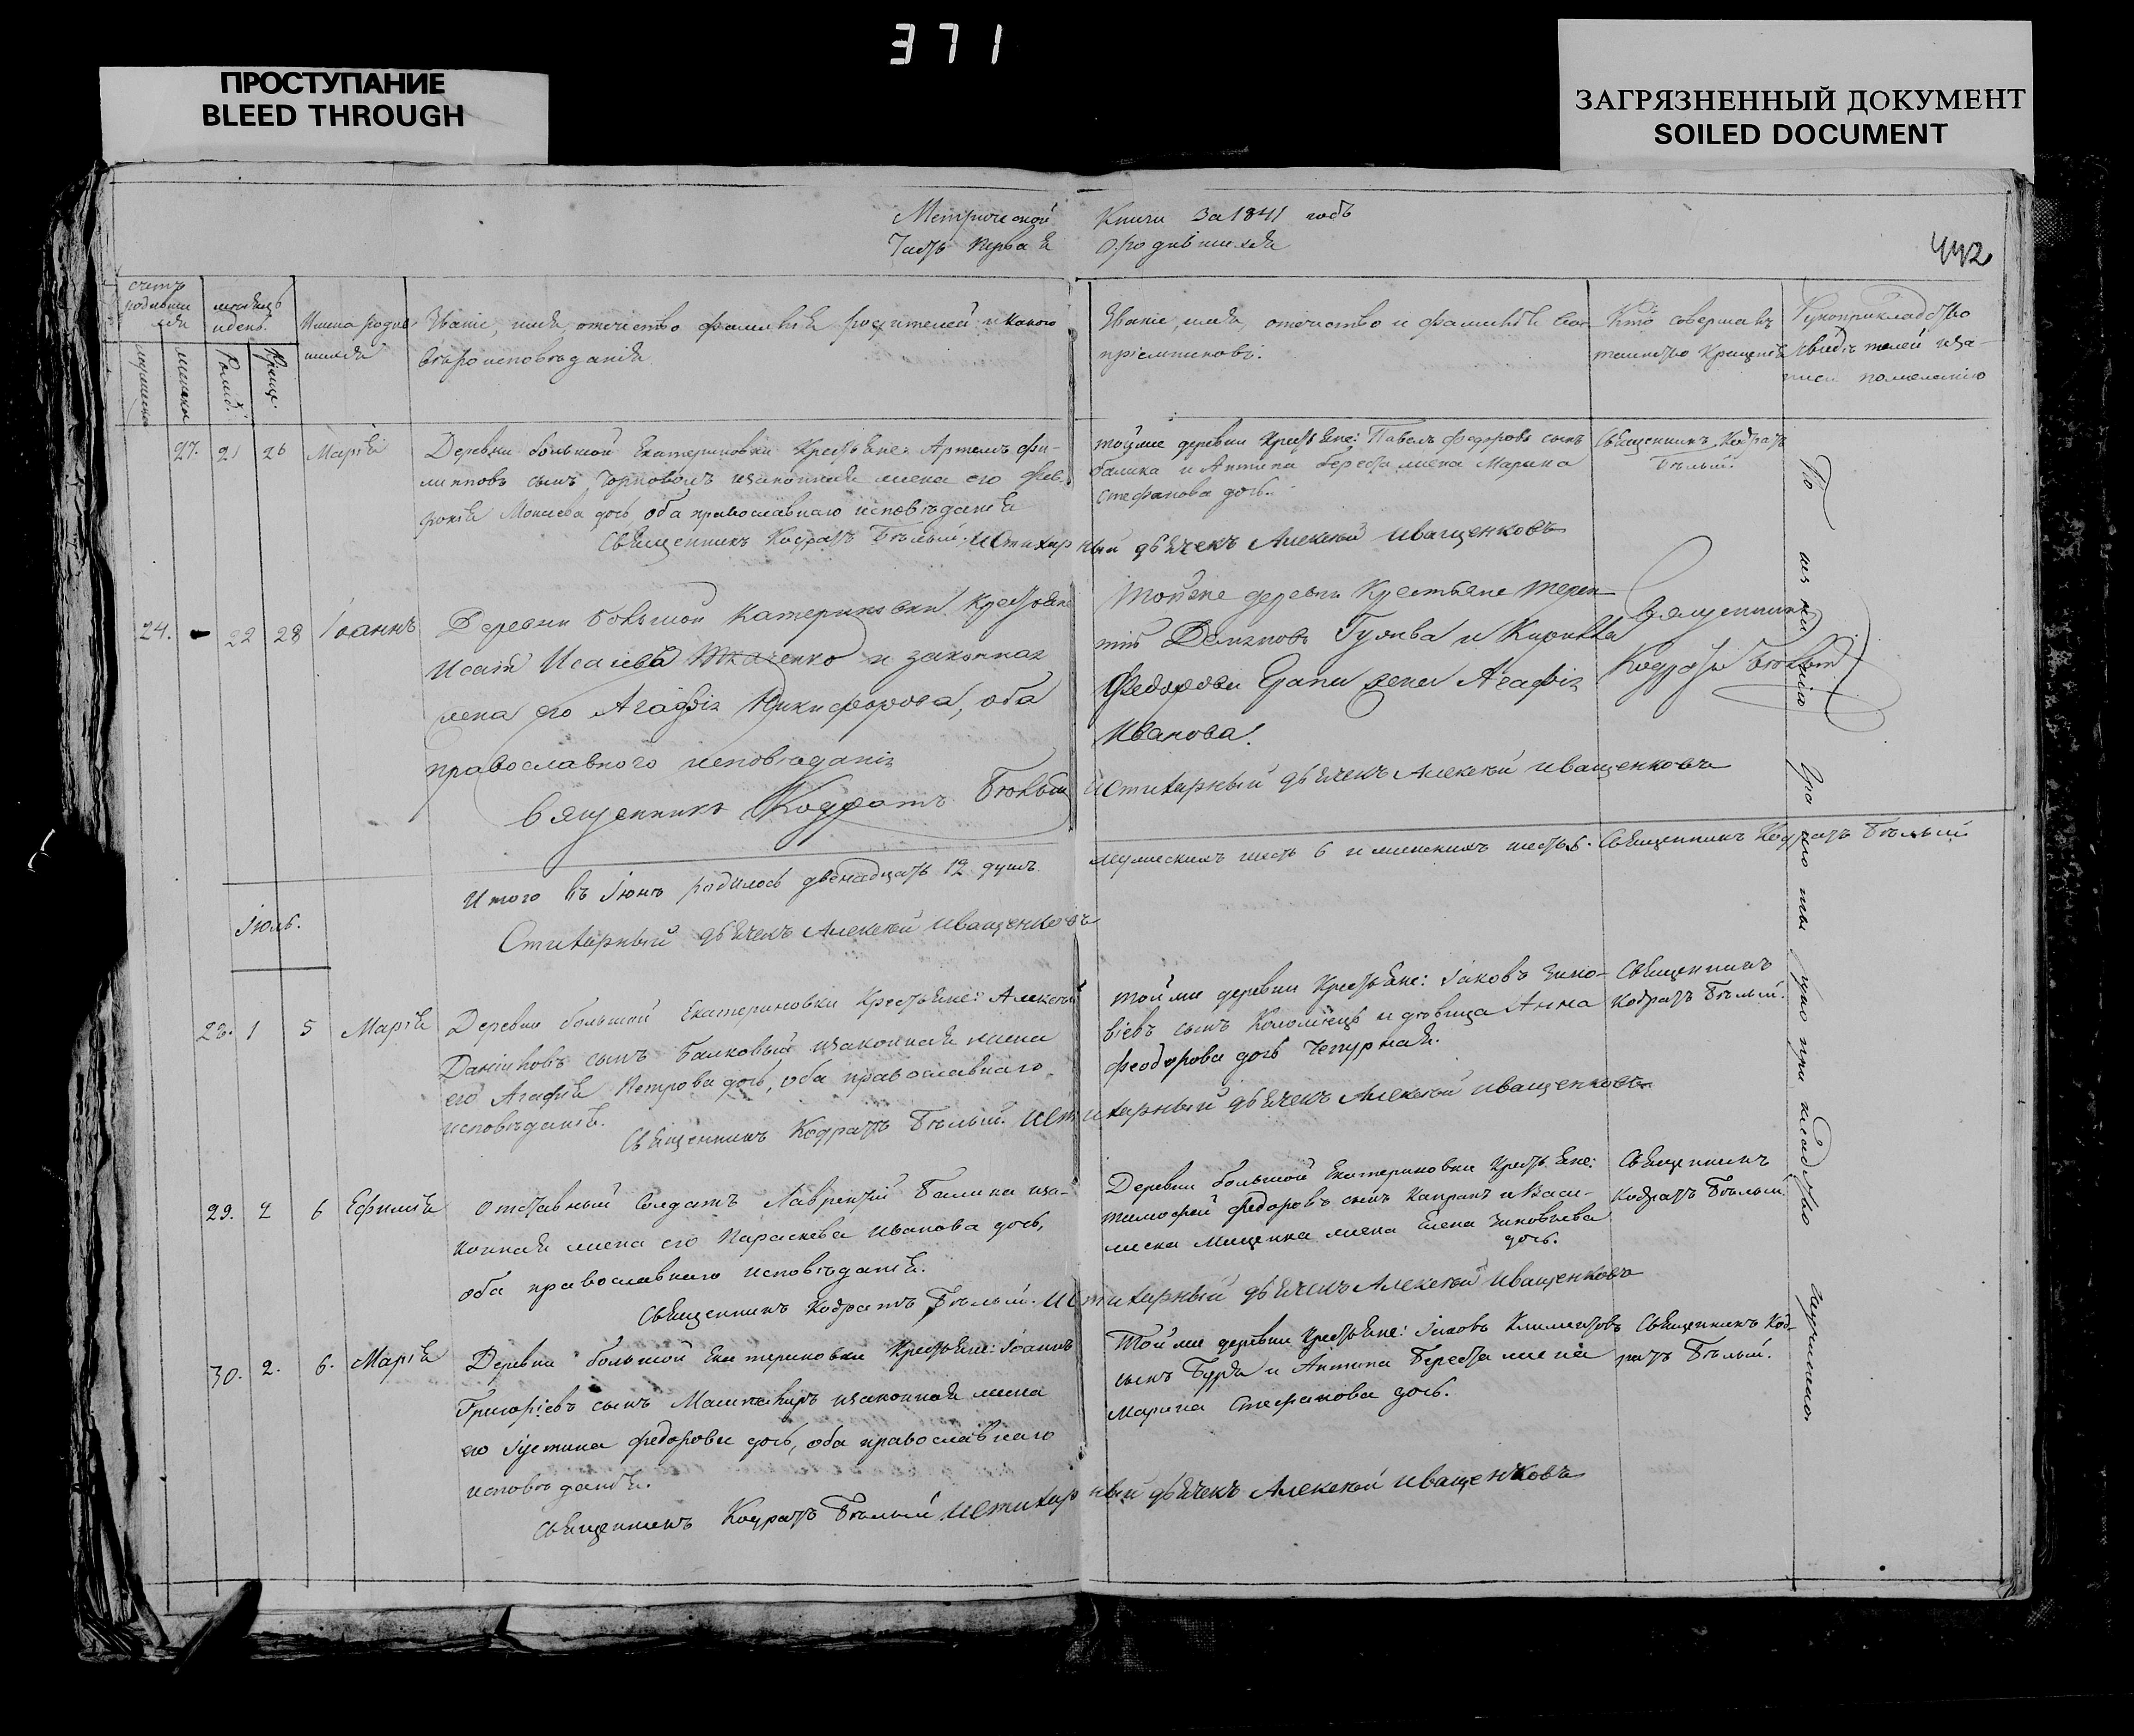 371
ПРОСТУПАНИЕ
BLEED THROUGH
ЗАГРЯЗНЕННЫЙ ДОКУМЕНТ
SOILED DOCUMENT
Метрической Книги За 1841 годъ
Часть первая о родившихся
442
счетъ родившихся
мужеска
женска
мѣсяцъ и день.
Рожд.
Крещ.
Имена родившихся
Званіе, имя, отечество и фамилія родителей и какого
вѣроисповѣданія
Званіе, имя, отечество и фамилія вос-
пріемниковъ.
Кто совершалъ
таинство Крещенія
Рукоприкладство
свидѣтелей иза-
писи по желанію
27. 21 26 Марія
Деревни большой Екатериновки Крестьяне: Артемъ Фи-
липповъ сынъ изаконная жена его Фев-
ронія Моисеева дочь оба православнаго исповѣданія
Священникъ Кодратъ Бѣлый. и Стихарный дьячекъ Алексѣй Иващенковъ
тойже деревни Крестьяне: Павелъ Федоровъ сынъ
Балика и Антипа Береста жена Марина
Стефанова дочь.
Священникъ Кодратъ
Бѣлый.
24. - 22 28 Іоаннъ
Деревни Большой Катериновки Крестьяне
Исаій Исаіевъ Ткаченко и законная
жена его Агафія Никифорова, оба
православного исповѣданія
Священникъ Кодратъ Бѣлый и Стихарный дьячекъ Алексѣй Иващенковъ
Тойже деревни Крестьяне Терен-
тій и Кирилла
Федорова жена Агафія
Иванова.
Священникъ
Кодратъ Бѣлый
Итого въ Іюнѣ родилось двенадцать 12 душъ
мужескихъ шесть 6 и женскихъ шесть 6. Священникъ Кодратъ Бѣлый
Стихарный дьячекъ Алексѣй Иващенковъ
Іюль.
28. 1 5 Марія
Деревни большой Екатериновки Крестьяне: Алексѣй
Даніиловъ сынъ Балковый изаконная жена
его Агафія Петрова дочь, оба православнаго
исповѣданія.
Священникъ Кодратъ Бѣлый. и Стихарный дьячекъ Алексѣй Иващенковъ
тойже деревни Крестьяне: Іаковъ Зино-
віевъ сынъ Коломіецъ и дѣвица Анна
Феодорова дочь Чепурная.
Священникъ
Кодратъ Бѣлый.
29. 2 6 Ефимія
Отставный Солдатъ Лаврентій Балика иза-
конная жена его Параскева Иванова дочь,
оба православнаго исповѣданія.
Священникъ Кодратъ Бѣлый. и Стихарный дьячекъ Алексѣй Иващенковъ
Деревни большой Екатериновки Крестьяне:
Тимофей Федоровъ сынъ Капранъ и Васи-
жена Елена Зиновьева
дочь.
Священникъ
Кодратъ Бѣлый.
30. 2. 6. Марія
Деревни большой Екатериновки Крестьяне: Іоаннъ
Григоріевъ сынъ изаконная жена
его Іустина Федорова дочь, оба православнаго
исповѣданія.
Священникъ Кодратъ Бѣлый и Стихарный дьячекъ Алексѣй Иващенковъ
Тойже деревни Крестьяне: Іаковъ Климентовъ
сынъ Бурда и Антипа Береста жена
Марина Стефанова дочь.
Священникъ Код-
ратъ Бѣлый.